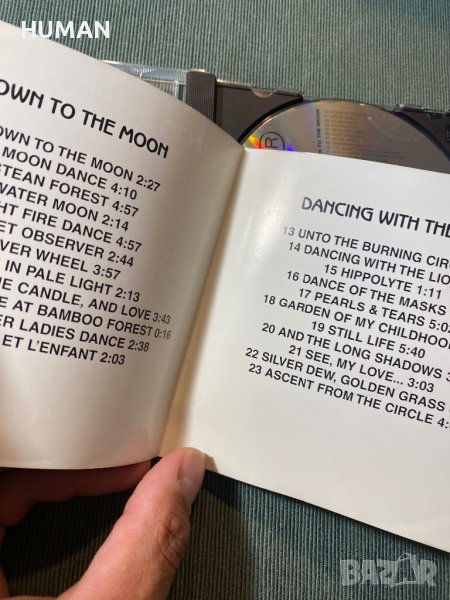 HUMAN
OWN TO THE MOON
OWN TO THE MOON 2:27
MOON DANCE 4:10
STEAN FOREST 4:57
WATER MOON 2:14
HT FIRE DANCE 4:57
ET OBSERVER 2:44
VER WHEEL 3:57
IN PALE LIGHT 2:13
HE CANDLE, AND LOVE 3:43
E AT BAMBOO FOREST 0:16
ER LADIES DANCE 2:38
ET L'ENFANT 2:03
DANCING WITH THE
13 UNTO THE BURNING CIRC
14 DANCING WITH THE LIO
15 HIPPOLYTE 1:11
16 DANCE OF THE MASKS
17 PEARLS & TEARS 5:02
18 GARDEN OF MY CHILDHOO
19 STILL LIFE 5:40
20 AND THE LONG SHADOWS
21 SEE, MY LOVE... 3:03
22 SILVER DEW, GOLDEN GRASS
23 ASCENT FROM THE CIRCLE 4:
BAZAR